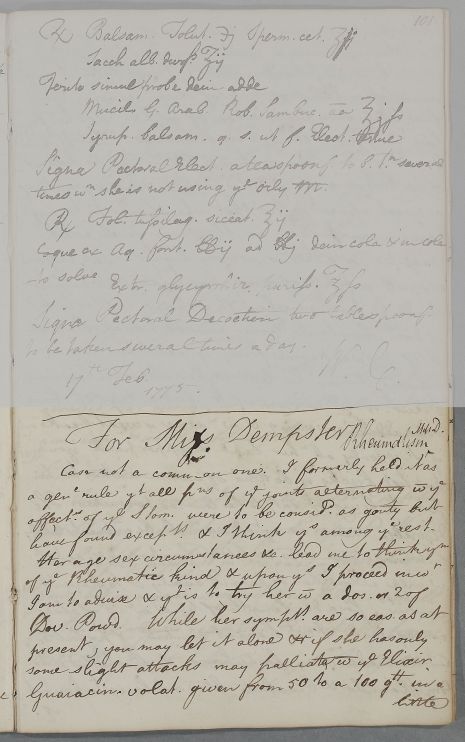 101
℞ Balsam. Tolut. ʒj Sperm. cet. ʒij
Sacch alb. dur. ʒij
Terito simul probe dein adde
Mucil. G. Arab. Rob. Sambuc. aa ʒj ss
Syrup. balsam. q. s. ut f. Elect.
Signa Pectoral Elect. a teaspoonf. to b. tn. several
times wn she is not using ye oily M.
℞ Fol. tussilag. siccat. ʒij
Coque ex Aq. font. ℔ij ad ℔j dein cola & in cola
to solve Extr. glycyrrhiz. puriss. ʒss
Signa Pectoral Decoction two tablespoonf.
to be taken several times a day.
17th Feb. W. C.
1775.
For Miss Dempster Rheumatism MrD.
Case not a common one. I formerly held it as
a genl rule yt all pns of ye joints alternating w ye
affectns of ye Stom. were to be consid. as gouty but
have found excepts & I think ys among ye rest.
Her age sex circumstances &c. lead me to think ym
of ye Rheumatic kind & upon ys I proceed in wt
I am to advise & yt is to try her w a dos. or 2 of
Dov. Powd. While her sympt. are so eas. as at
present, you may let it alone & if she has only
some slight attacks may palliate w ye Elixir
Guaiacin. volat. given from 50 to a 100 gtt. in a
little